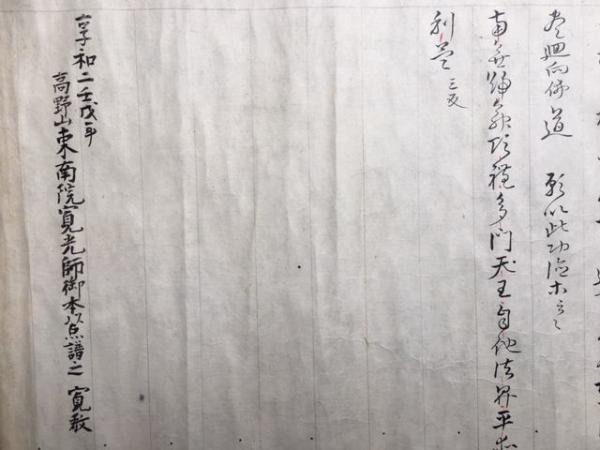 尽廻向佛道　願以此功徳ホ云々
南無帰命頂礼多門天王自他法界平ホ
利益 三反
享和二壬戌年
高野山東南院寛光師御本以点譜之 寛敬